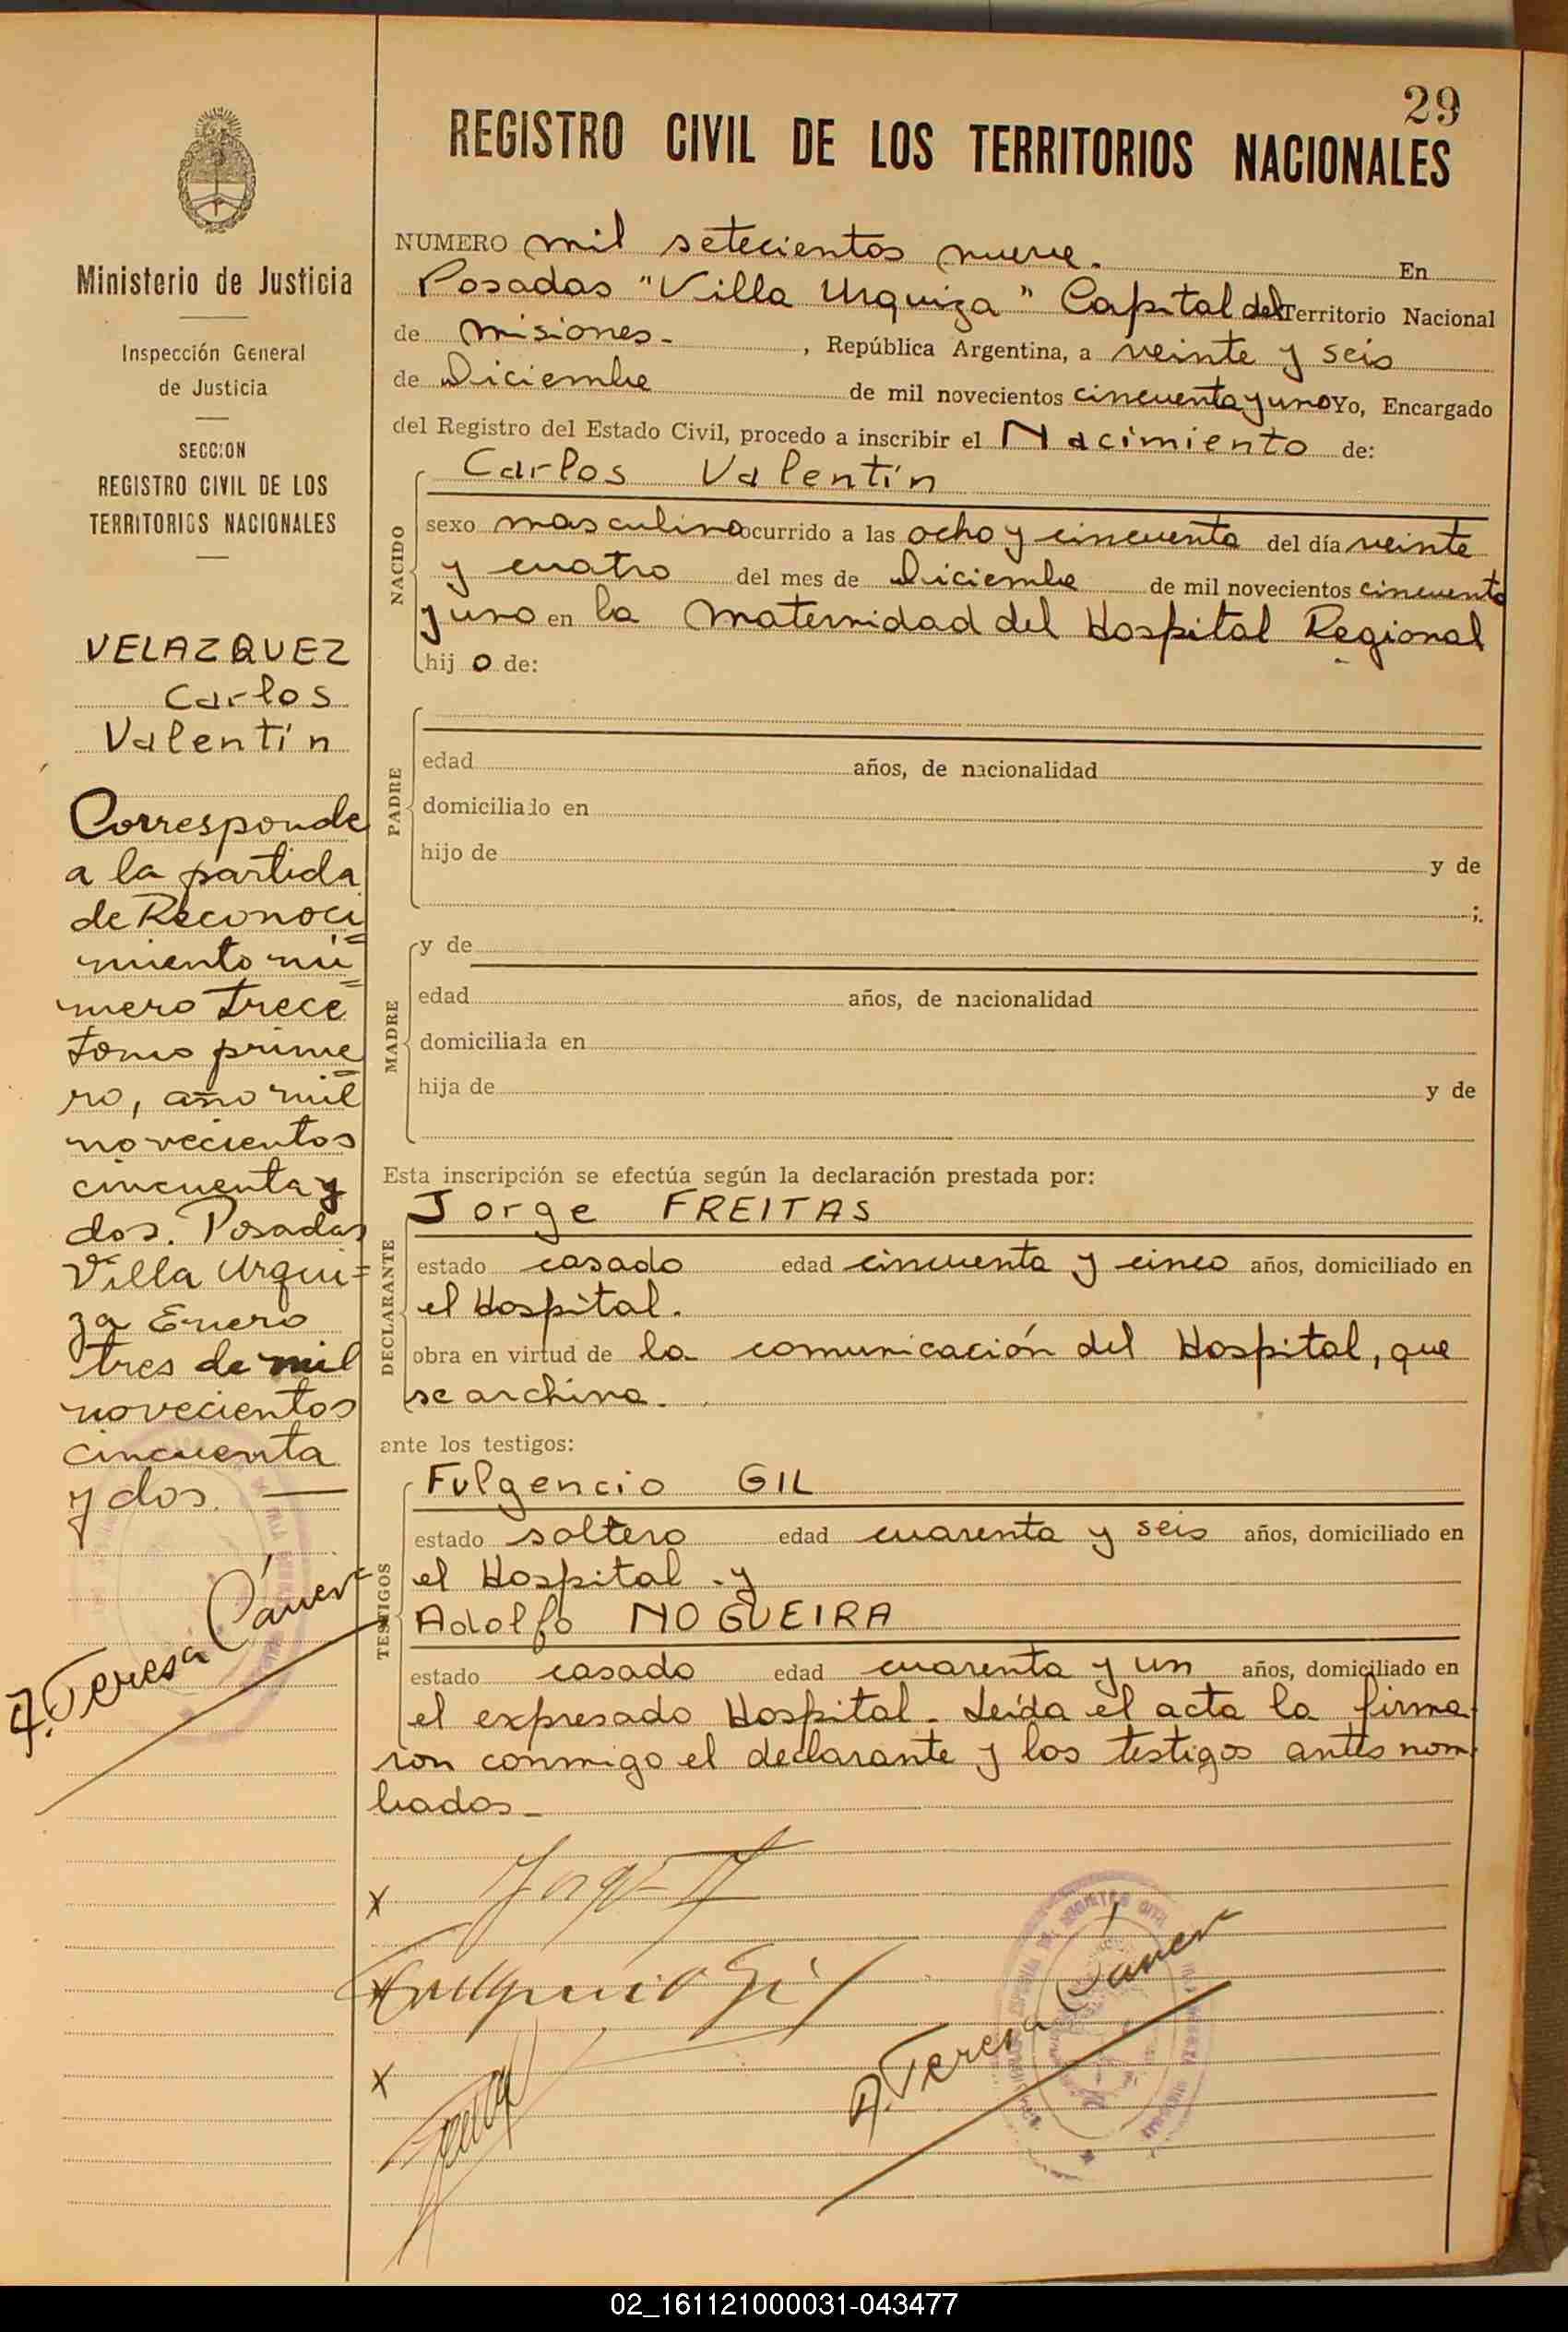 29
REGISTRO CIVIL DE LOS TERRITORIOS NACIONALES
Ministerio de Justicia
Inspección General
de Justicia
SECCION
REGISTRO CIVIL DE LOS
TERRITORIOS NACIONALES
VELAZQUEZ
Carlos
Valentín
Corresponde
a la partida
de Reconoci
miento nú=
mero trece
tomo prime
ro, año mil
novecientos
cincuenta y
dos. Posadas
Villa Urqui=
za Enero
tres de mil
novecientos
cincuenta
y dos. —
A. Teresa
NUMERO mil setecientos nueve. En
Posadas "Villa Urquiza" Capital del Territorio Nacional
de misiones- , República Argentina, a veinte y seis
de Diciembre de mil novecientos cincuenta y uno Yo, Encargado
del Registro del Estado Civil, procedo a inscribir el Nacimiento de:
Carlos Valentín
NACIDO
sexo masculino ocurrido a las ocho y cincuenta del día veinte
y cuatro del mes de Diciembre de mil novecientos cincuenta
y uno en la Maternidad del Hospital Regional
hij o de:
PADRE
edad años, de nacionalidad
domiciliado en
hijo de y de
;.
MADRE
y de
edad años, de nacionalidad
domiciliada en
hija de y de
Esta inscripción se efectúa según la declaración prestada por:
DECLARANTE
Jorge FREITAS
estado casado edad cincuenta y cinco años, domiciliado en
el Hospital.
obra en virtud de la comunicación del Hospital, que
se archiva.
ante los testigos:
TESTIGOS
Fulgencio GIL
estado soltero edad cuarenta y seis años, domiciliado en
el Hospital . y
Adolfo NOGUEIRA
estado casado edad cuarenta y un años, domiciliado en
el expresado Hospital. Leída el acta la firma-
ron conmigo el declarante y los testigos antes nom-
brados-
x Jorge
x Fulgencio Gil
x
A. Teresa
02_161121000031-043477